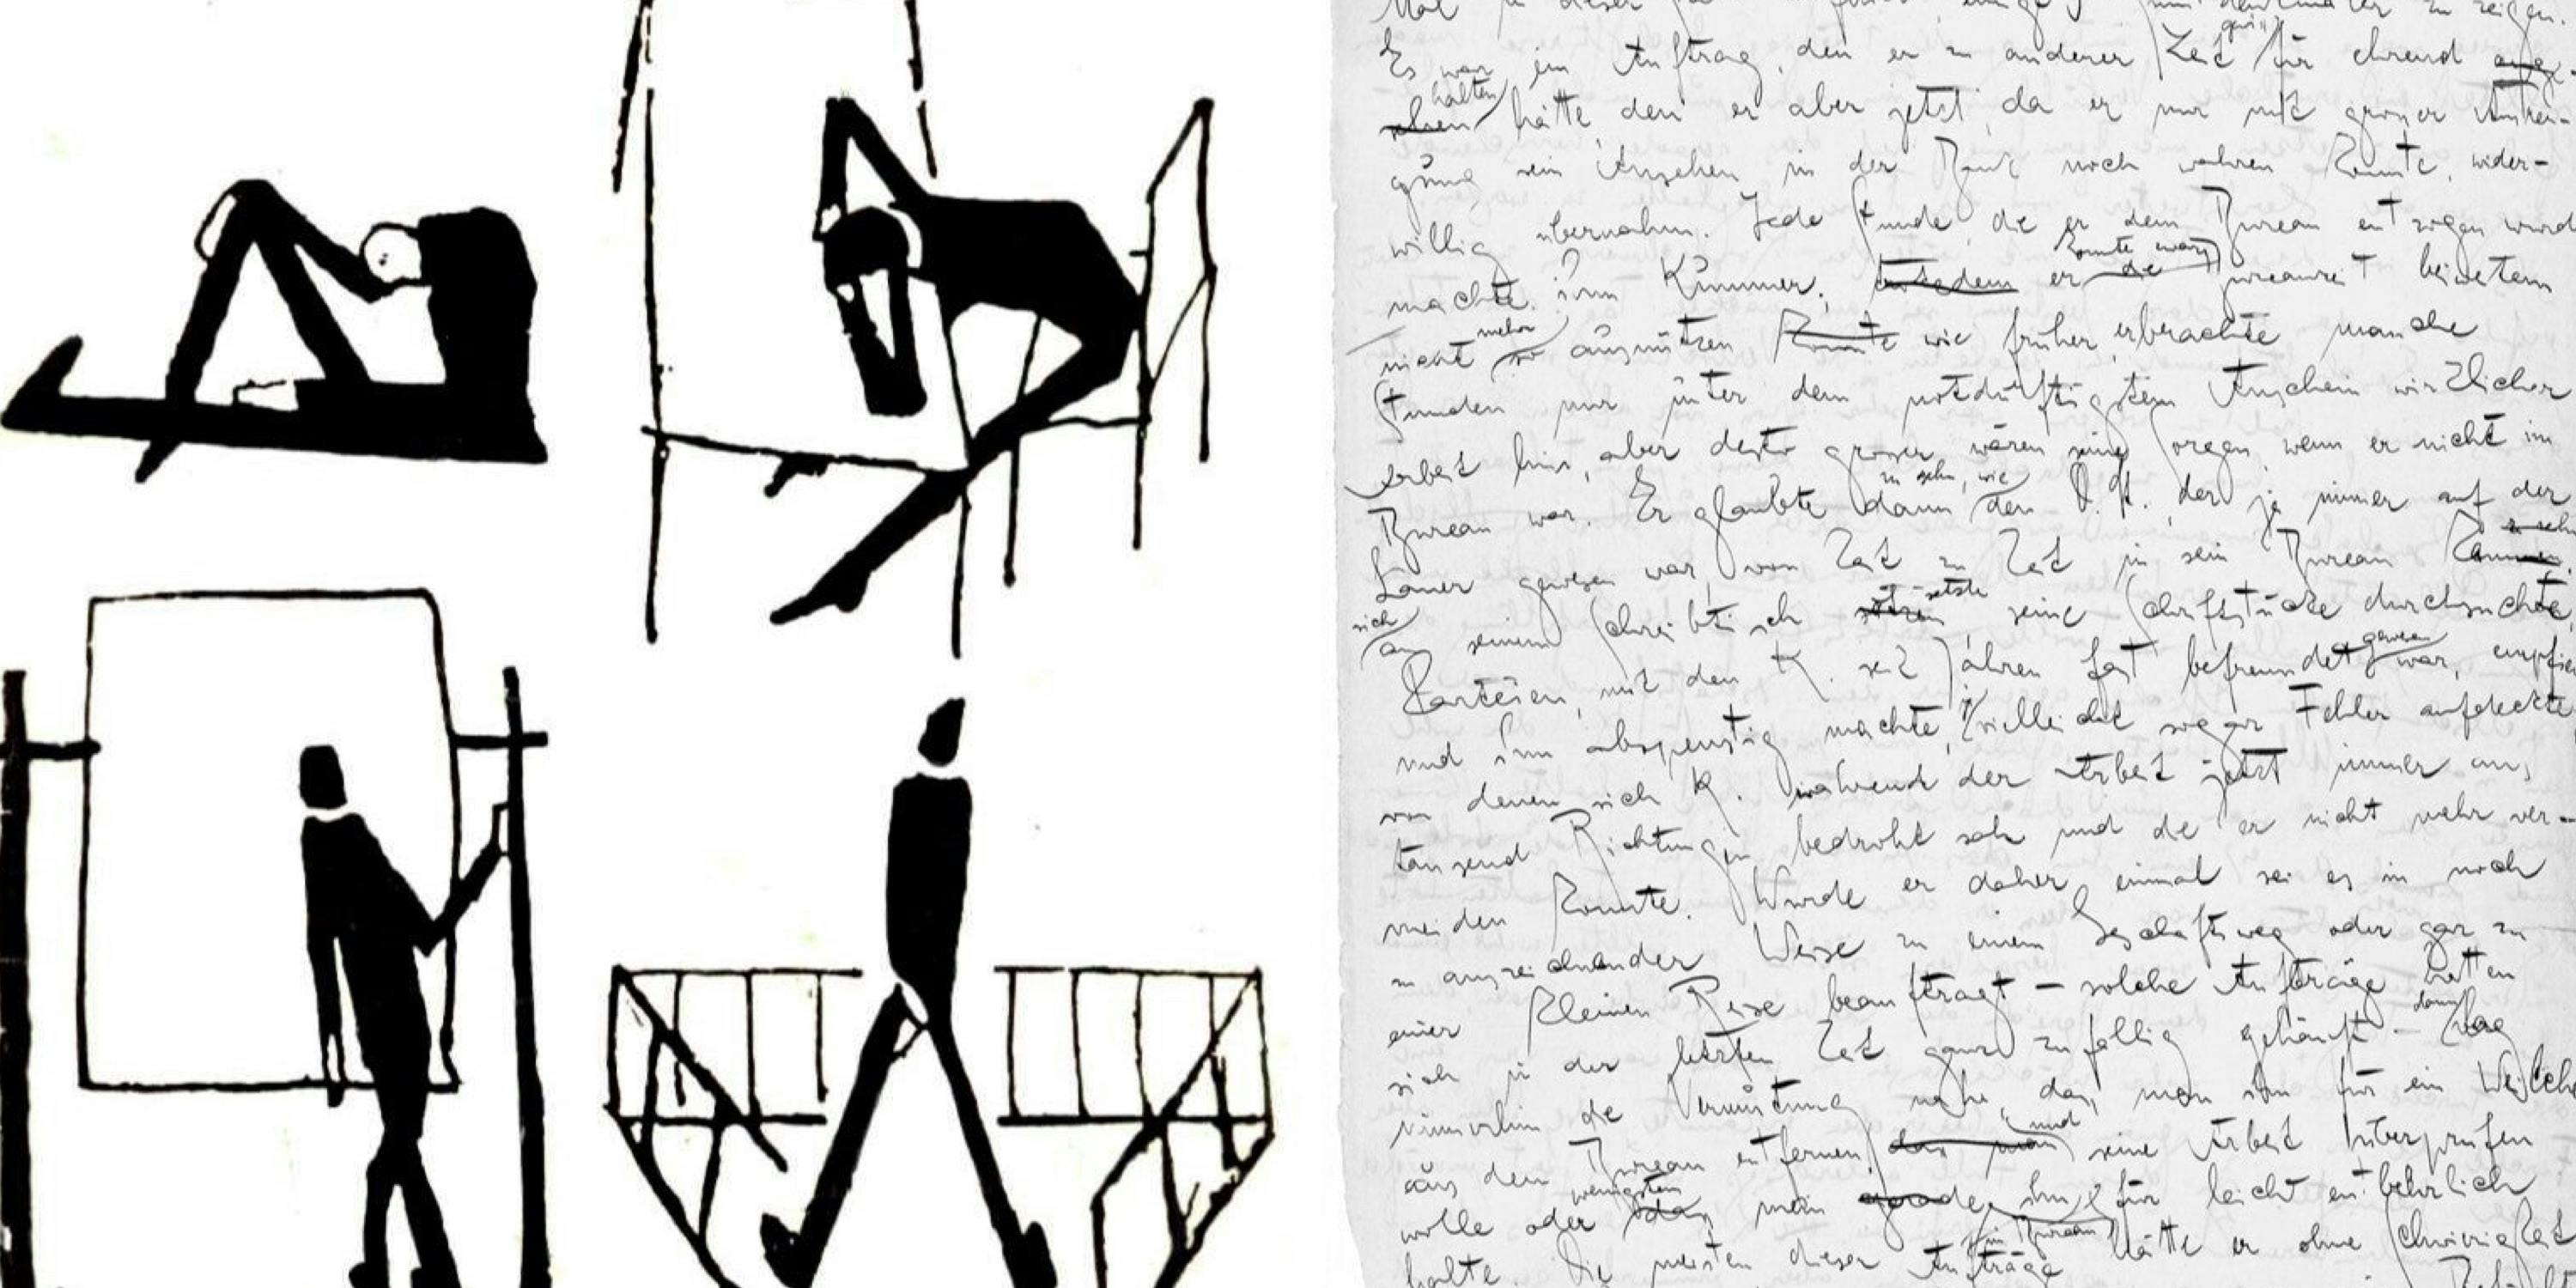 Mal in dieser Stadt aufhielt, einige Kunstdenkmäler zu zeigen.
Es war ein Auftrag, den er zu anderer Zeit gewiss für ehrend ange-
sehen halten hätte, den er aber jetzt, da er nur mit grosser Anstren-
gung sein Ansehen in der Bank noch wahren konnte, wider-
willig übernahm. Jede Stunde, die er dem Bureau entzogen wurde
machte ihm Kummer; trotzdem er konnte zwar die Bureauzeit bei weitem
nicht mehr so ausnützen konnte wie früher, er brachte manche
Stunden nur unter dem notdürftigsten Anschein wirklicher
Arbeit hin, aber desto grösser waren seine Sorgen, wenn er nicht im
Bureau war. Er glaubte dann zu sehn, wie der D. St., der ja immer auf der
Lauer gewesen war, von Zeit zu Zeit in sein Bureau
sich an seinem Schreibtisch setzte seine Schriftstücke durchsuchte,
Parteien, mit den K. seit Jahren fast befreundet gewesen war, empfieng
und ihm abspenstig machte, ja vielleicht sogar Fehler aufdeckte,
von denen sich K. während der Arbeit jetzt immer aus
tausend Richtungen bedroht sah und die er nicht mehr ver-
meiden konnte. Wurde er daher einmal sei es in noch
so auszeichnender Weise zu einem Geschäftsweg oder gar zu
einer kleinen Reise beauftragt – solche Aufträge hatten
sich in der letzten Zeit ganz zufällig gehäuft – dann lag
immerhin die Vermutung nahe, dass man ihn für ein Weilchen
aus dem Bureau entfernen, dass man und seine Arbeit überprüfen
wolle oder wenigstens dass man gerade ihn im Bureau für leicht entbehrlich
halte. Die meisten dieser Aufträge hätte er ohne Schwierigkeit